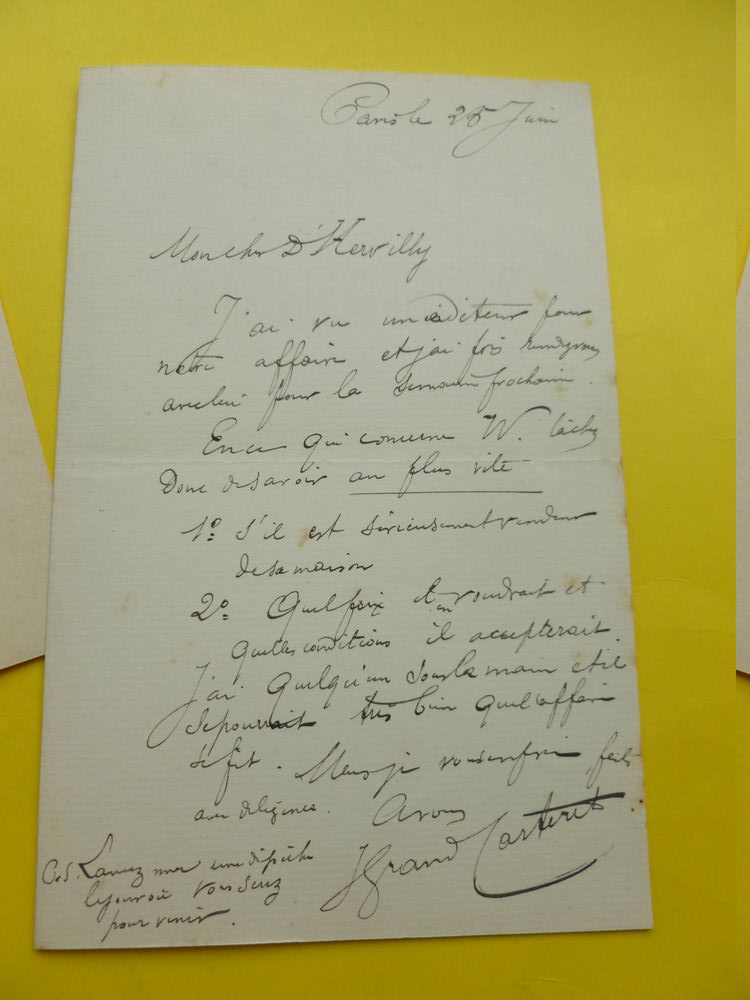 Paris le 25 Juin
Mon cher D'Hervilly
J'ai vu un éditeur pour
notre affaire et j'ai pris rendezvous
avec lui pour la semaine prochaine.
En ce qui concerne W. tâchez
Donc de savoir au plus vite
1º S'il est sérieusement vendeur
de sa maison
2º Quel prix il en voudrait et
quelles conditions il accepterait.
J'ai quelqu'un sous la main et il
se pourrait très bien que l'affaire
se fit. Mais je vous en prie, faites
avec diligence. A vous
J Grand Carteret
P.S. Lancez moi une dépêche
le jour où vous serez
pour venir.